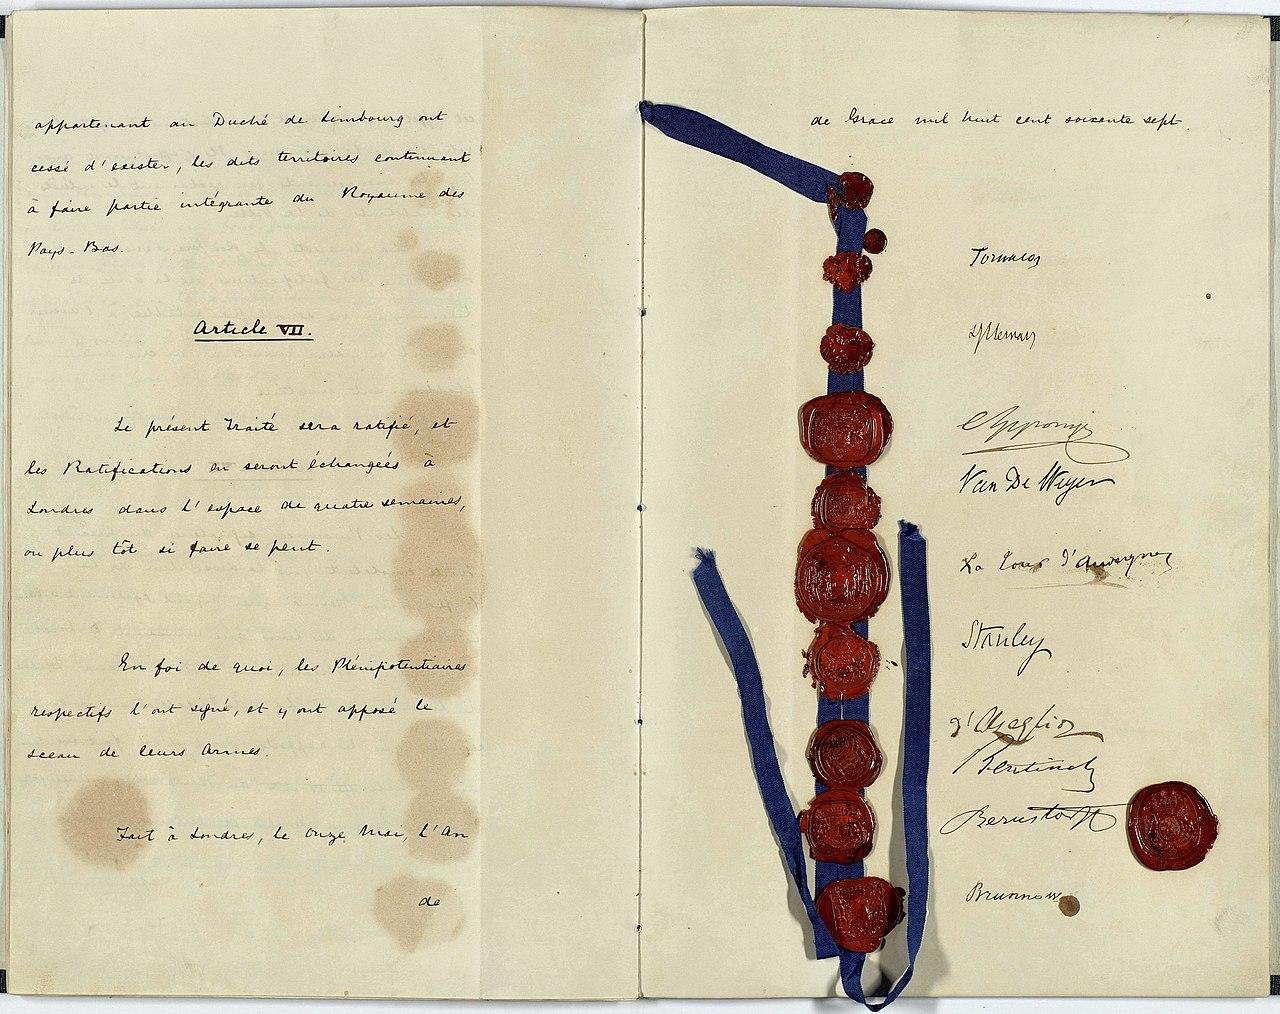 appartenant au Duché de Limbourg ont
cessé d'exister, les dits territoires continuant
à faire partie intégrante du Royaume des
Pays-Bas.
Article VII.
Le présent Traité sera ratifié, et
les Ratifications en seront échangées à
Londres dans l'espace de quatre semaines,
ou plus tôt si faire se peut.
En foi de quoi, les Plénipotentiaires
respectifs l'ont signé, et y ont apposé le
sceau de leurs Armes
Fait à Londres, le onze Mai, l'An
de
de Grace mil huit cent soixante sept.
Tornaco
Apponyi
Van De Weyer
La Tour d'Auvergne
Stanley
d'Azeglio
Bentinck
Bernstorff
Brunnow